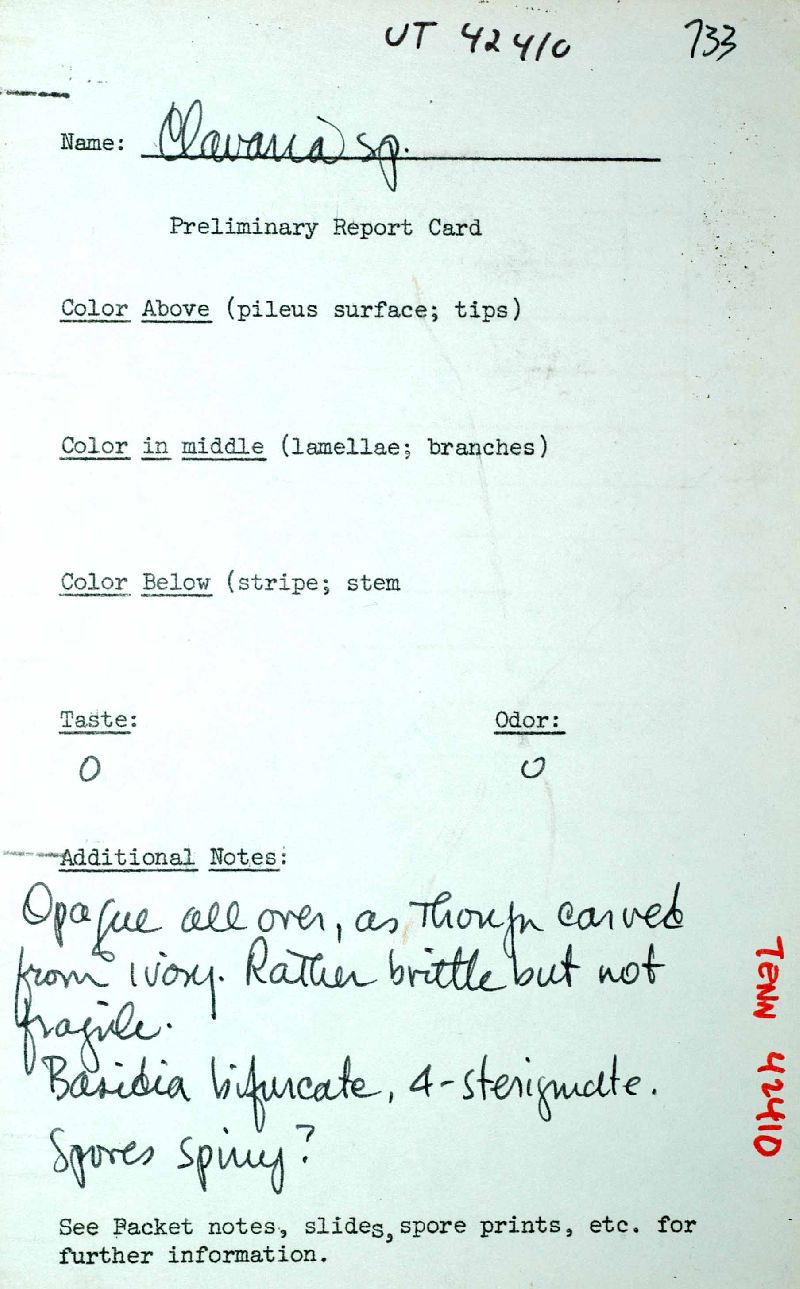 UT 42410 733
Name: Clavaria sp.
Preliminary Report Card
Color Above (pileus surface; tips)
Color in middle (lamellae; branches)
Color Below (stripe; stem
Taste: Odor:
O O
Additional Notes:
Opaque all over, as though carved
from ivory. Rather brittle but not
fragile.
Basidia bifurcate, 4-sterigmate.
Spores spiny?
See Packet notes, slides, spore prints, etc. for
further information.
TENN 42410